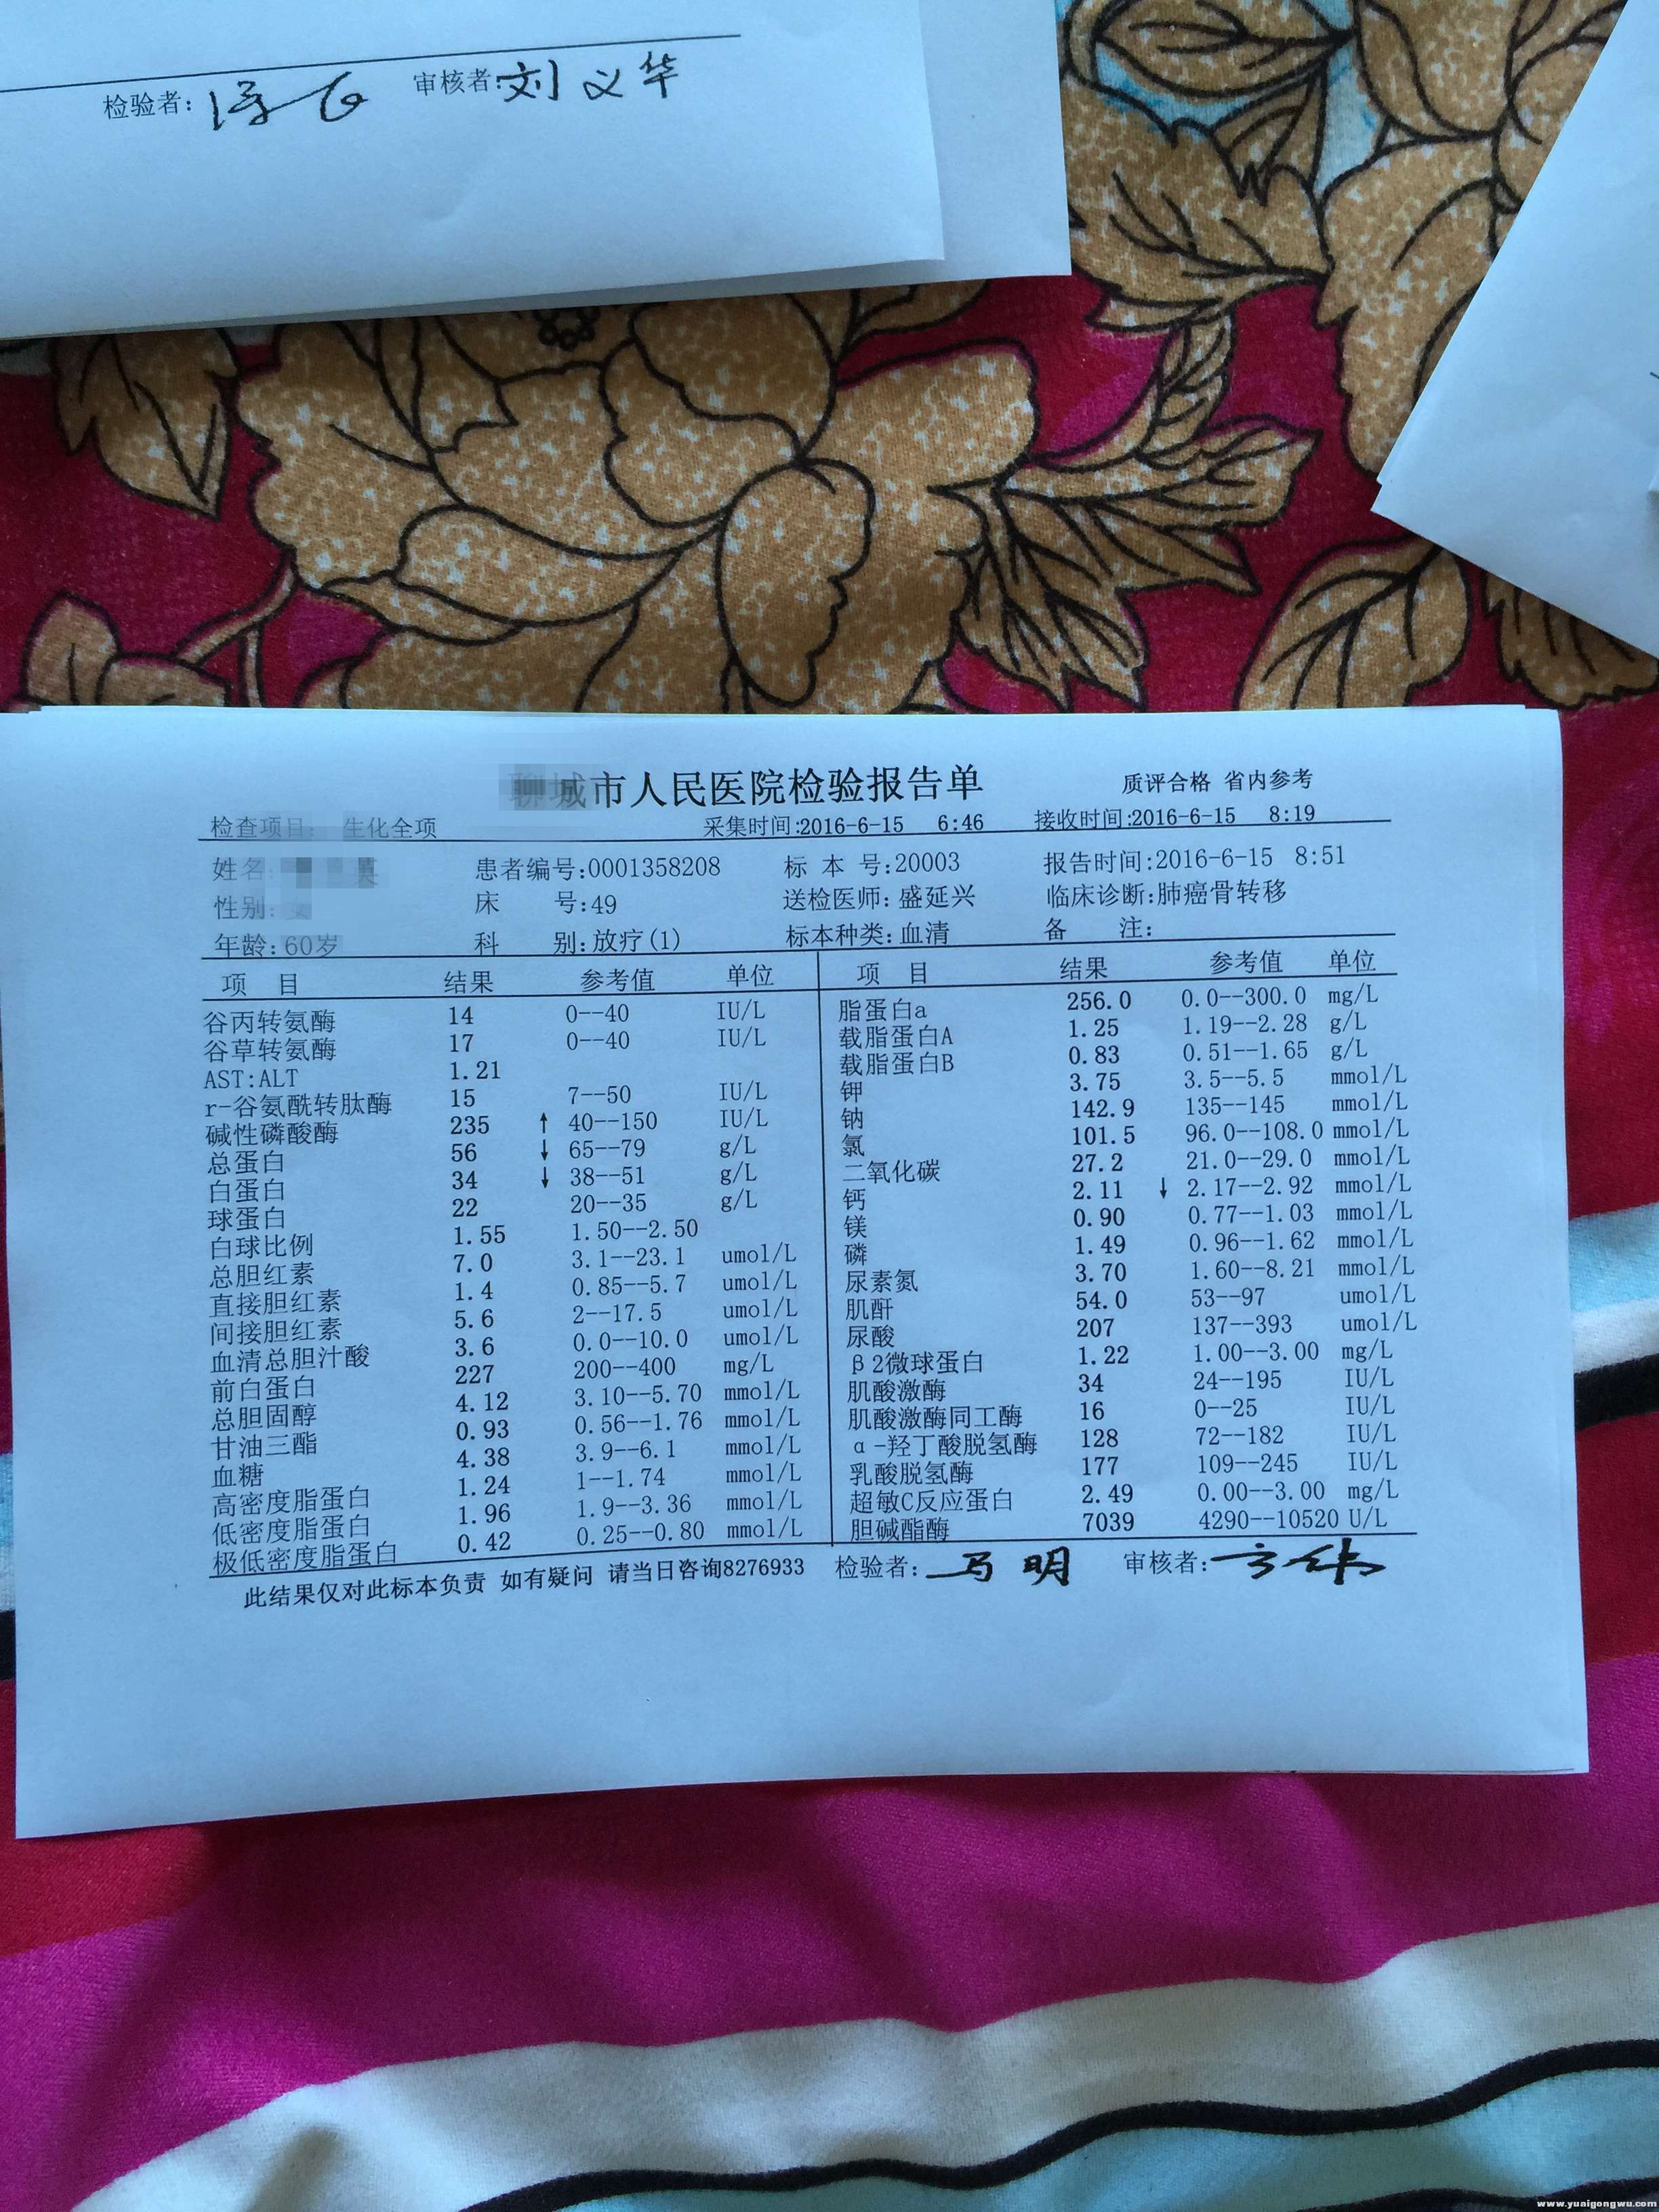 检验者: 审核者:刘义华
市人民医院检验报告单 质评合格 省内参考
检查项目: 生化全项 采集时间:2016-6-15 6:46 接收时间:2016-6-15 8:19
姓名: 患者编号:0001358208 标 本 号:20003 报告时间:2016-6-15 8:51
性别: 床 号:49 送检医师: 盛延兴 临床诊断:肺癌骨转移
年龄: 60岁 科 别:放疗(1) 标本种类:血清 备 注:
项 目 结果 参考值 单位 项 目 结果 参考值 单位
谷丙转氨酶 14 0--40 IU/L 脂蛋白a 256.0 0.0--300.0 mg/L
谷草转氨酶 17 0--40 IU/L 载脂蛋白A 1.25 1.19--2.28 g/L
AST:ALT 1.21 载脂蛋白B 0.83 0.51--1.65 g/L
r-谷氨酰转肽酶 15 7--50 IU/L 钾 3.75 3.5--5.5 mmol/L
碱性磷酸酶 235 ↑ 40--150 IU/L 钠 142.9 135--145 mmol/L
总蛋白 56 ↓ 65--79 g/L 氯 101.5 96.0--108.0 mmol/L
白蛋白 34 ↓ 38--51 g/L 二氧化碳 27.2 21.0--29.0 mmol/L
球蛋白 22 20--35 g/L 钙 2.11 ↓ 2.17--2.92 mmol/L
白球比例 1.55 1.50--2.50 镁 0.90 0.77--1.03 mmol/L
总胆红素 7.0 3.1--23.1 umol/L 磷 1.49 0.96--1.62 mmol/L
直接胆红素 1.4 0.85--5.7 umol/L 尿素氮 3.70 1.60--8.21 mmol/L
间接胆红素 5.6 2--17.5 umol/L 肌酐 54.0 53--97 umol/L
血清总胆汁酸 3.6 0.0--10.0 umol/L 尿酸 207 137--393 umol/L
前白蛋白 227 200--400 mg/L β2微球蛋白 1.22 1.00--3.00 mg/L
总胆固醇 4.12 3.10--5.70 mmol/L 肌酸激酶 34 24--195 IU/L
甘油三酯 0.93 0.56--1.76 mmol/L 肌酸激酶同工酶 16 0--25 IU/L
血糖 4.38 3.9--6.1 mmol/L α-羟丁酸脱氢酶 128 72--182 IU/L
高密度脂蛋白 1.24 1--1.74 mmol/L 乳酸脱氢酶 177 109--245 IU/L
低密度脂蛋白 1.96 1.9--3.36 mmol/L 超敏C反应蛋白 2.49 0.00--3.00 mg/L
极低密度脂蛋白 0.42 0.25--0.80 mmol/L 胆碱酯酶 7039 4290--10520 U/L
此结果仅对此标本负责 如有疑问 请当日咨询8276933 检验者: 马明 审核者:
www.yuaigongwu.com